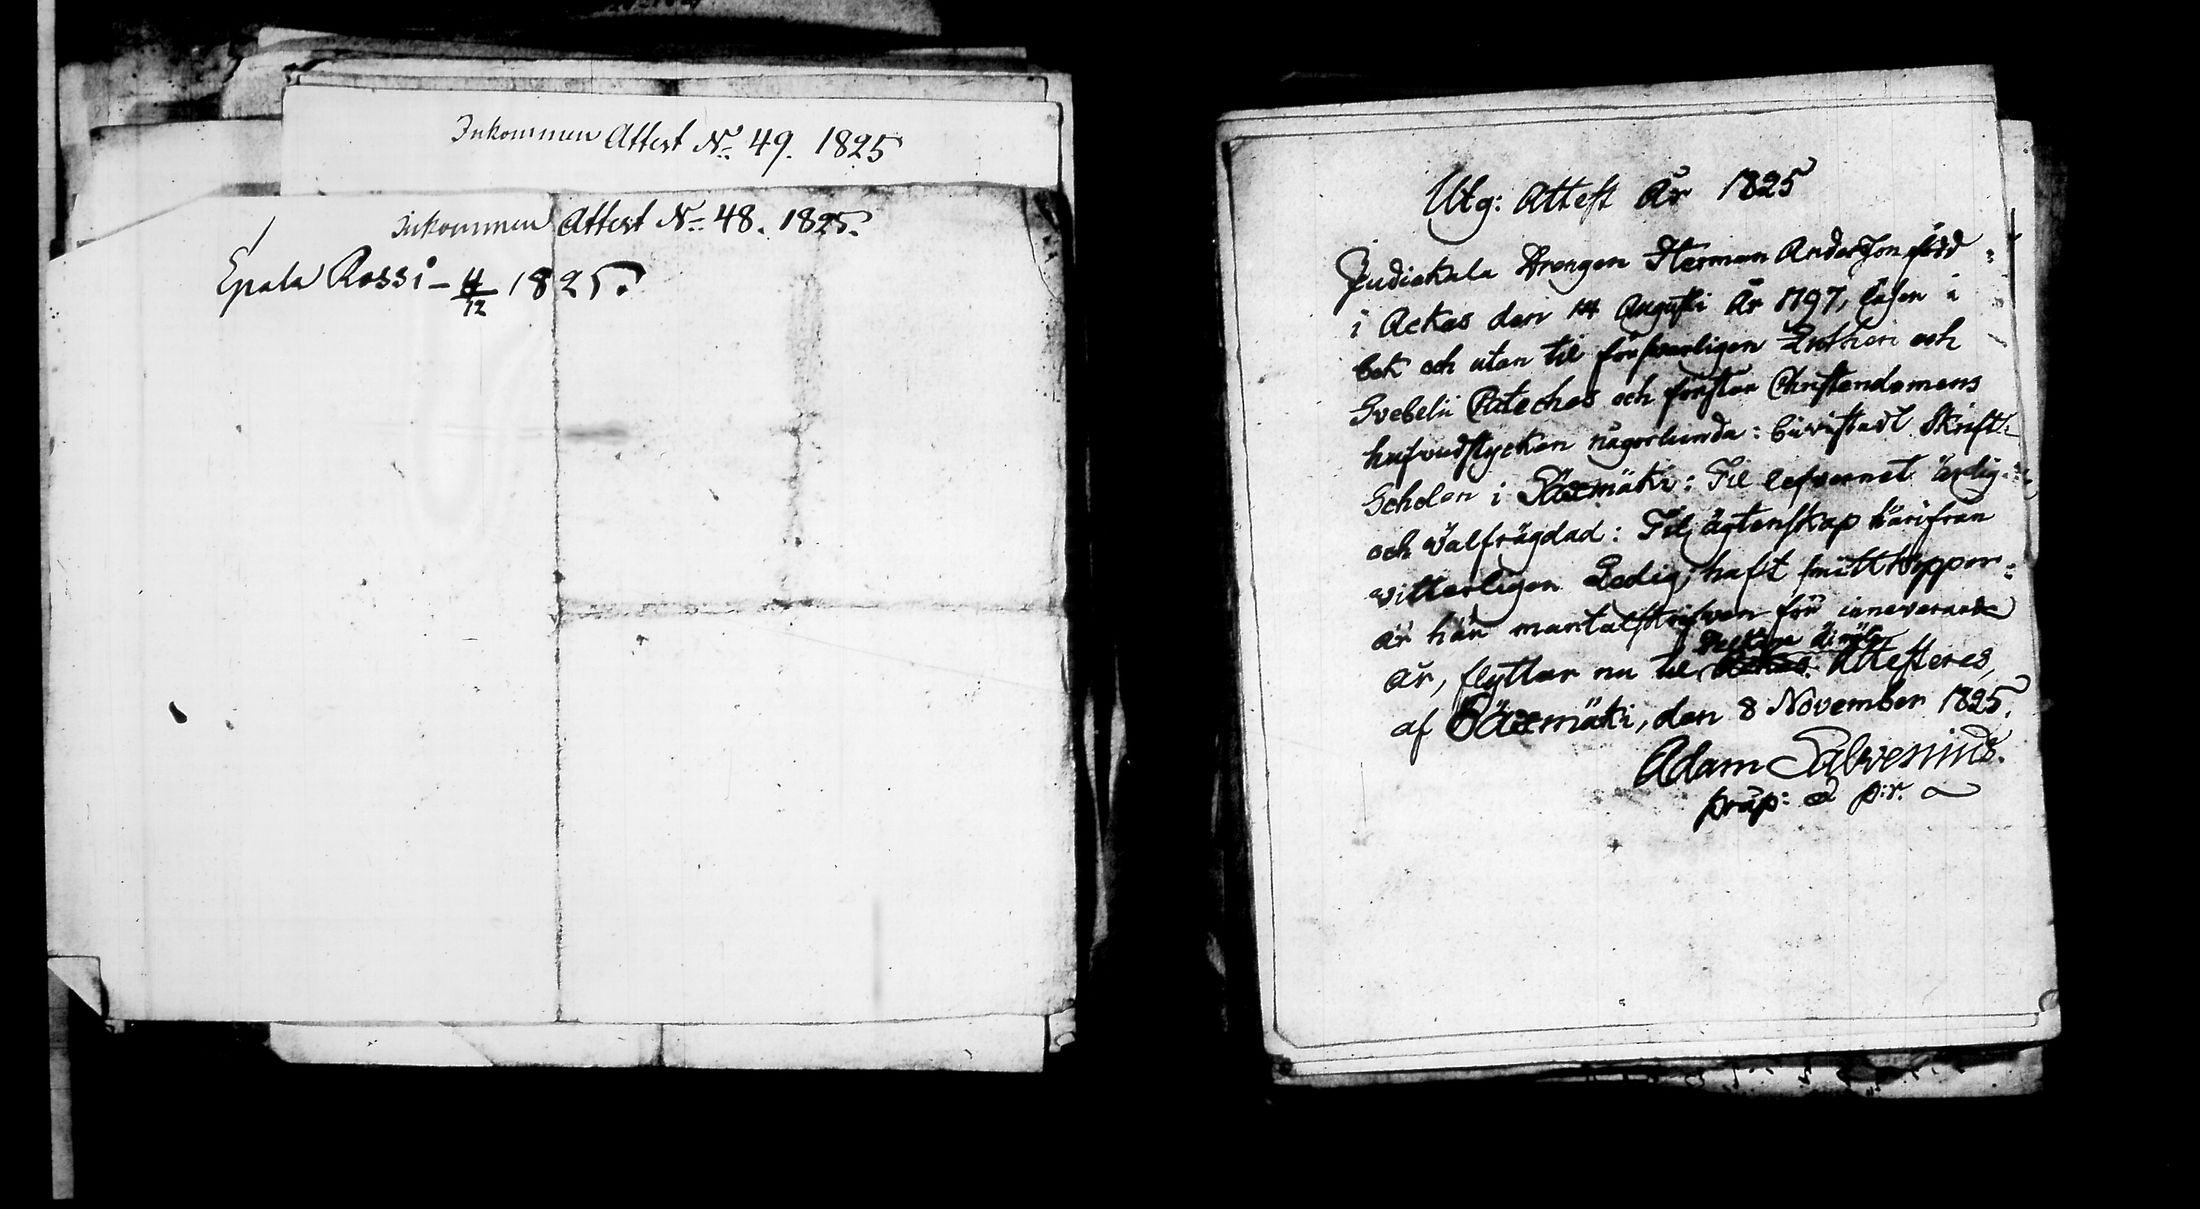 Inkommen Attest No 49. 1825
Inkommen Attest No 48. 1825.
Epala Rossi – 4/12 1825.
Utg: Attest År 1825
Drengen Herman Andersson född
i Ackas den 14 Augusti År 1797, läser i
bok och utan til försvarligen Lutheri och
Svebelii Cateches och förstår Christendomens
hufvudstycken någorlunda: bevistadt Skrift:
Scholen i Sääxmäki: Til lefvernet ärlig
och välfrägdad: Til ägtenskap härifrån
vitterligen Ledig; haft smittkoppor:
är här mantalskrifven för innevarande
år, flyttar nu til Attesteres,
af Sääxmäki, den 8 November 1825.
Adam Salvenius.
præp: & p:r.